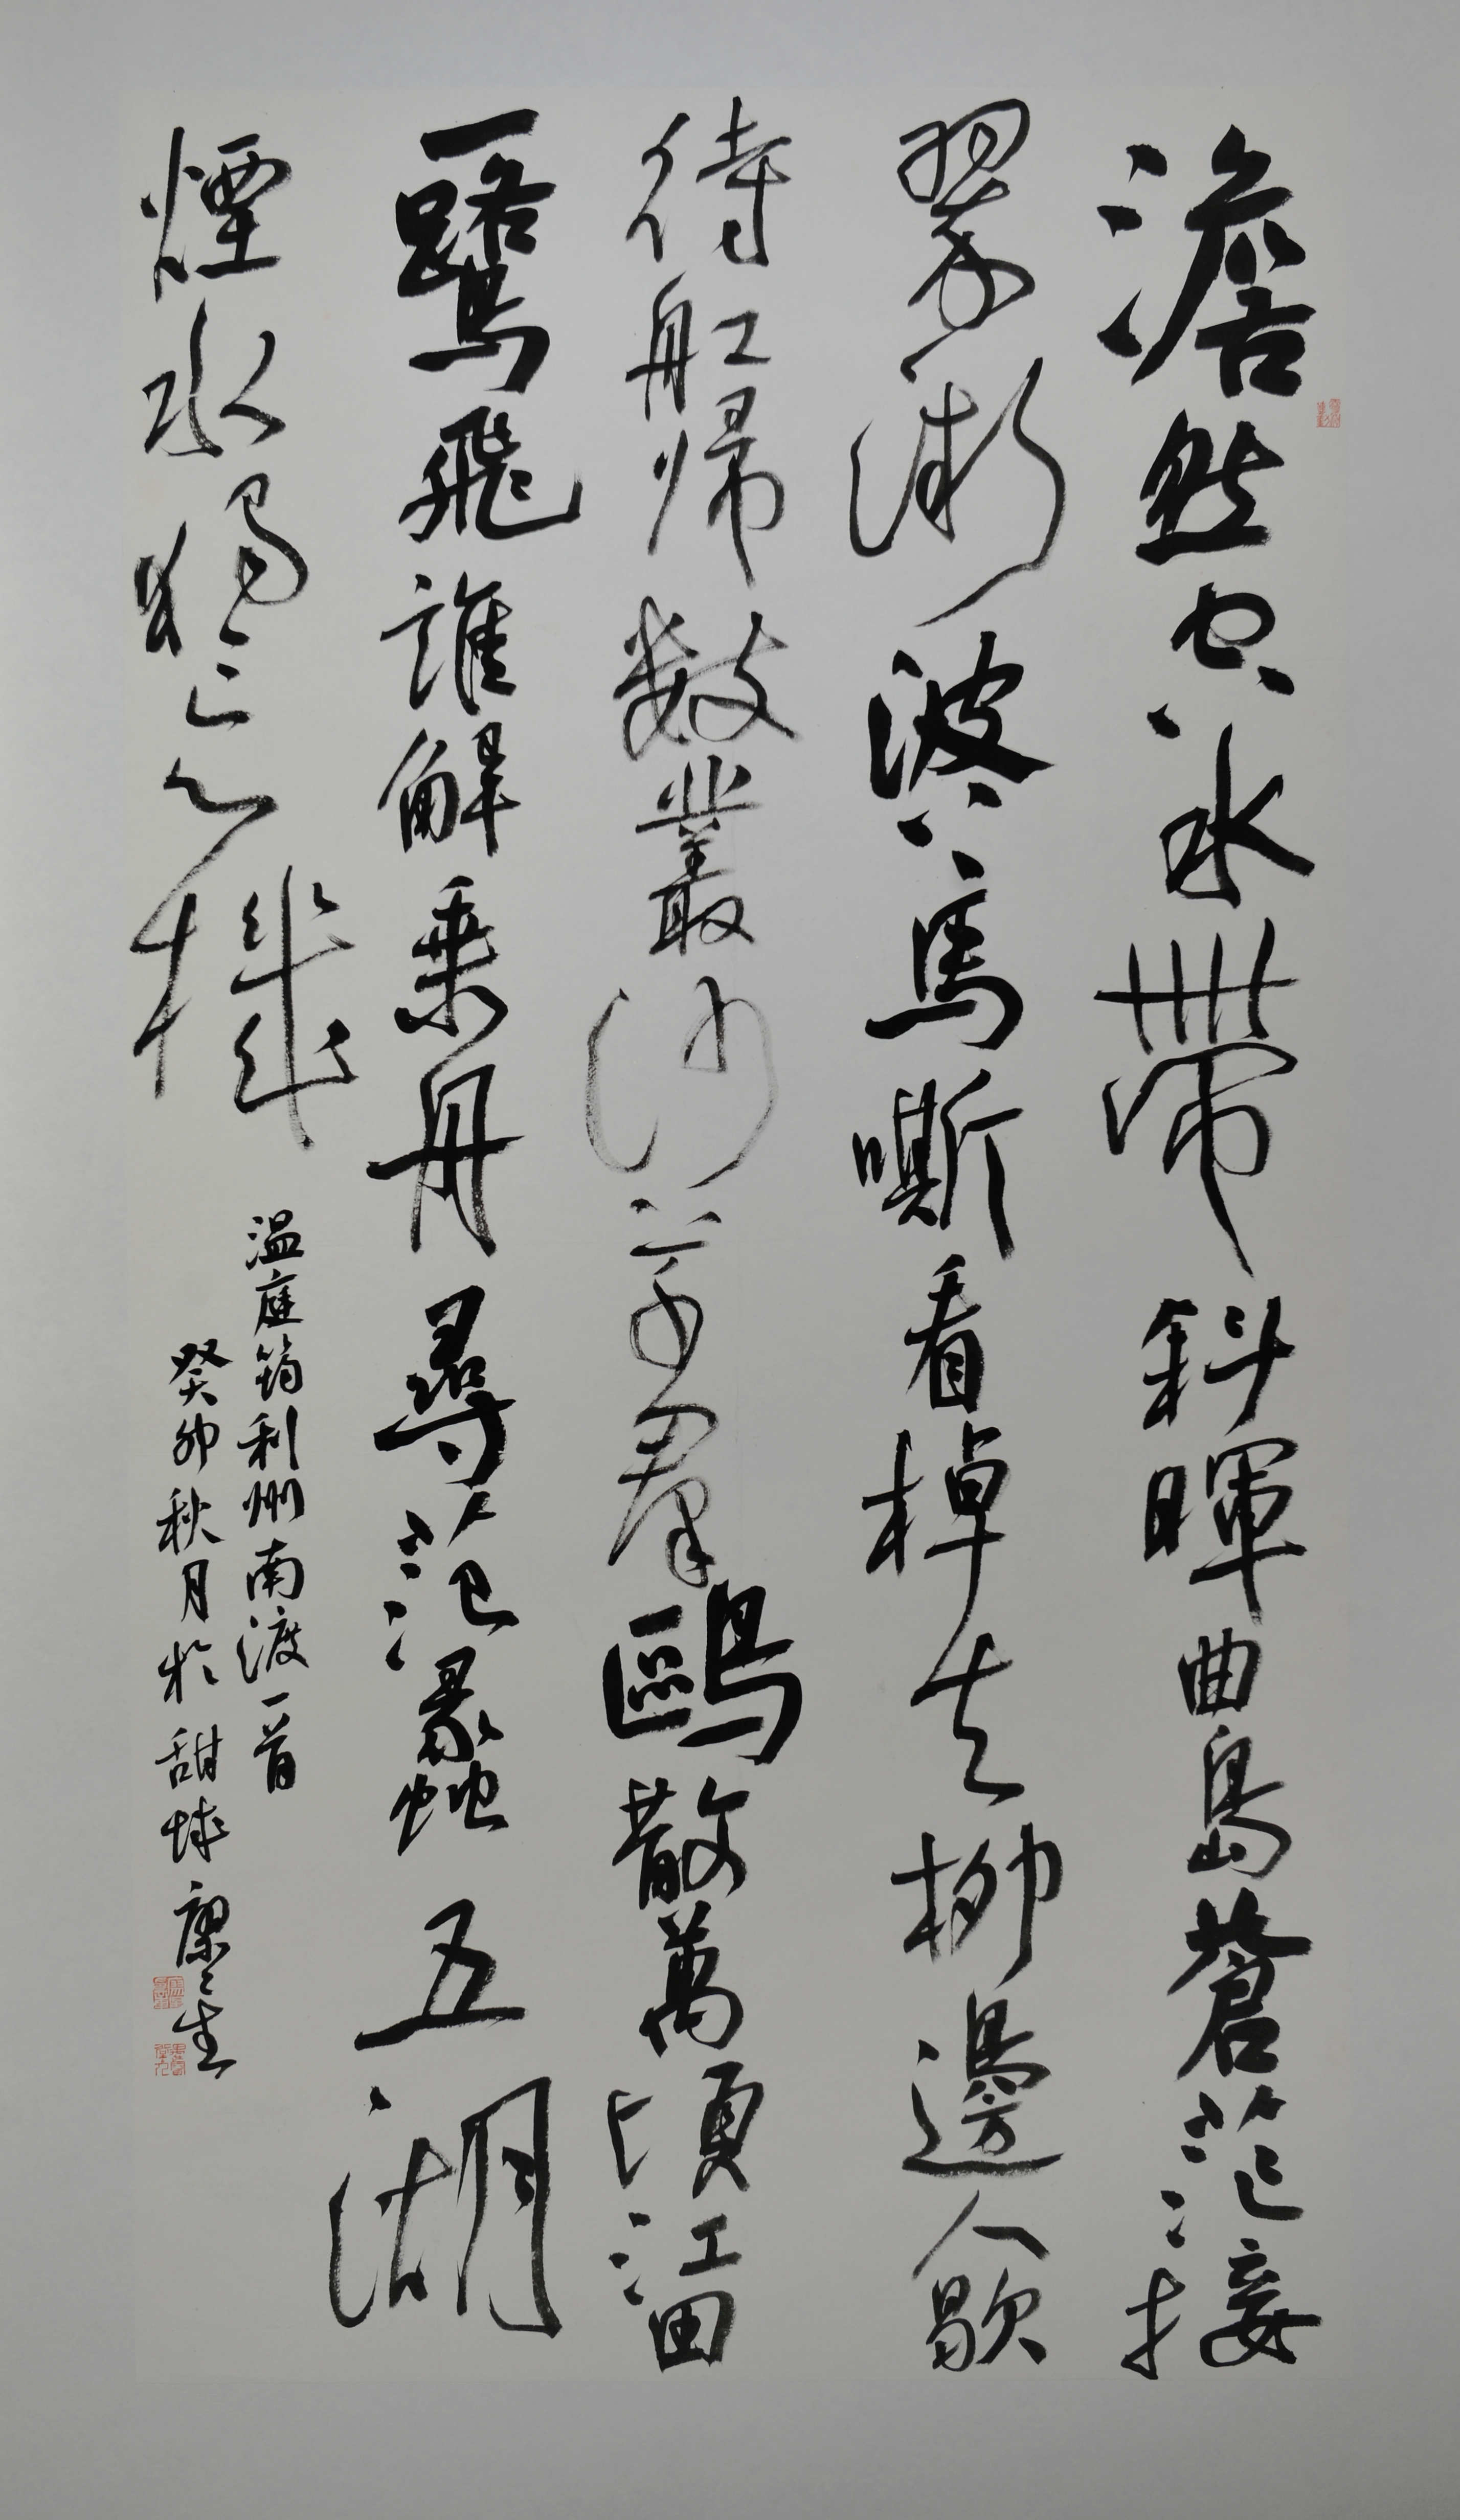 澹然空水帶斜暉曲島蒼茫接
翠微波上馬嘶看棹去柳邊人歇
待船歸數叢沙草羣鷗散萬頃江田
一鷺飛誰解乘舟尋范蠡五湖
煙水獨忘機
温庭筠利州南渡一首
癸卯秋月於甜城康生